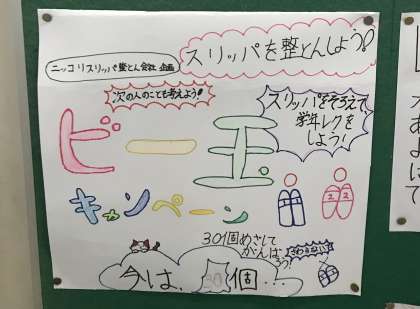 スリッパを整とんしよう!
ニッコリスリッパ整とん会社 企画
次の人のことも考えよう!
スリッパをそろえて
学年レクを
しよう!
ビー玉
キャンペーン
2 2
30個めざして
がんば
ろう!
今は、30個…